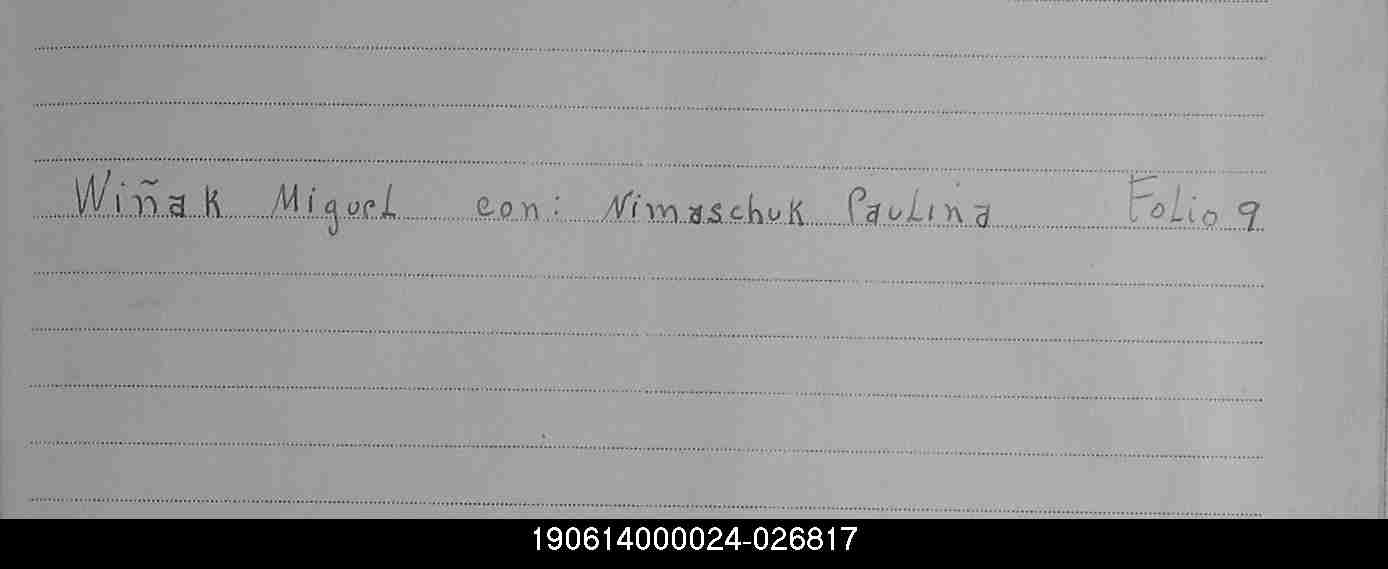 Wiñak Miguel con: Nimaschuk Paulina Folio 9
190614000024-026817